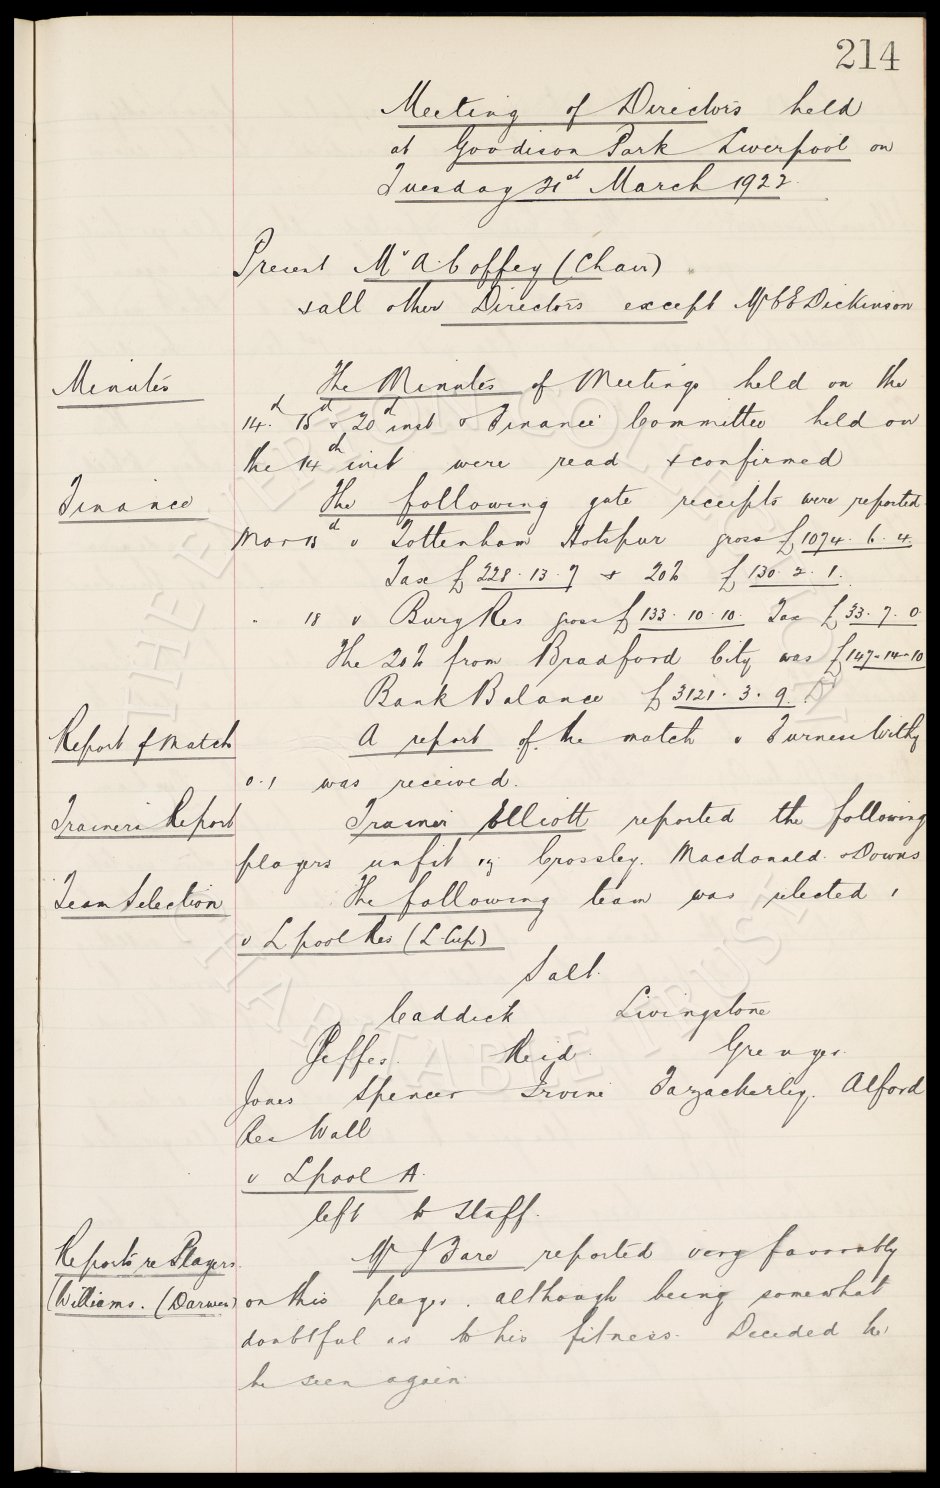 214
Meeting of Directors held
at Goodison Park Liverpool on
Tuesday 21st March 1922.
Present Mr A. Coffey (Chair)
& all other Directors except Mr C E Dickinson
Minutes
The Minutes of Meetings held on the
14th 15th & 20th inst & Finance Committee held on
the 14th inst were read & confirmed
Finance
The following gate receipts were reported
Mar 15th v Tottenham Hotspur gross £1074. 6. 4
Tax £228. 13. 7 & 20% £130. 2. 1.
" 18 v Bury Res gross £133. 10. 10. Tax £33. 7. 0
The 20% from Bradford City was £147-14-10
Bank Balance £3121. 3. 9.
Report of Match
A report of the match v Furness Withy
0.1 was received.
Trainers Report
Trainer Elliott reported the following
players unfit, Crossley. Macdonald. & Downs
Team Selection
The following team was selected,
v Lpool Res (L. Cup)
Salt.
Caddick Livingstone
Peffer. Reid. Grenyer.
Jones Spencer Irvine Fazackerley. Alford
Res Wall
v Lpool A.
left to Staff.
Reports re Players.
Mr J Fare reported very favourably
Williams. (Darwen)
on this player, although being somewhat
doubtful as to his fitness. Decided he
be seen again.
THE EVERTON COLLECTION
CHARITABLE TRUST